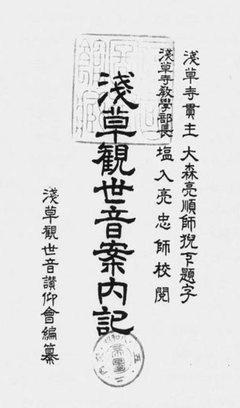 淺草寺貫主 大森亮順師猊下題字
淺草寺教學部長 塩入亮忠師校閲
淺草觀世音案内記
淺草觀世音讚仰會編纂